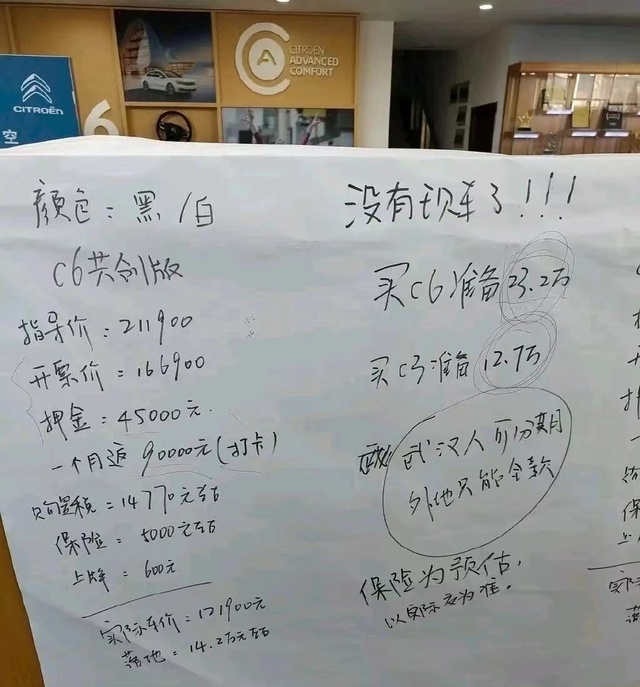 CITROËN
ADVANCED
COMFORT
CITROËN
空
6
颜色：黑/白
C6共创版
指导价：211900
开票价：166900
押金：45000元
一个月返 90000元(打卡)
购置税=14770元左右
保险=5000元左右
上牌=600元
实际车价=121900元
落地=14.2万元左右
没有现车了!!!
买C6准备23.2万
买C3准备12.7万
武汉人可分期
外地只能全款
保险为预估,
以实际为准.